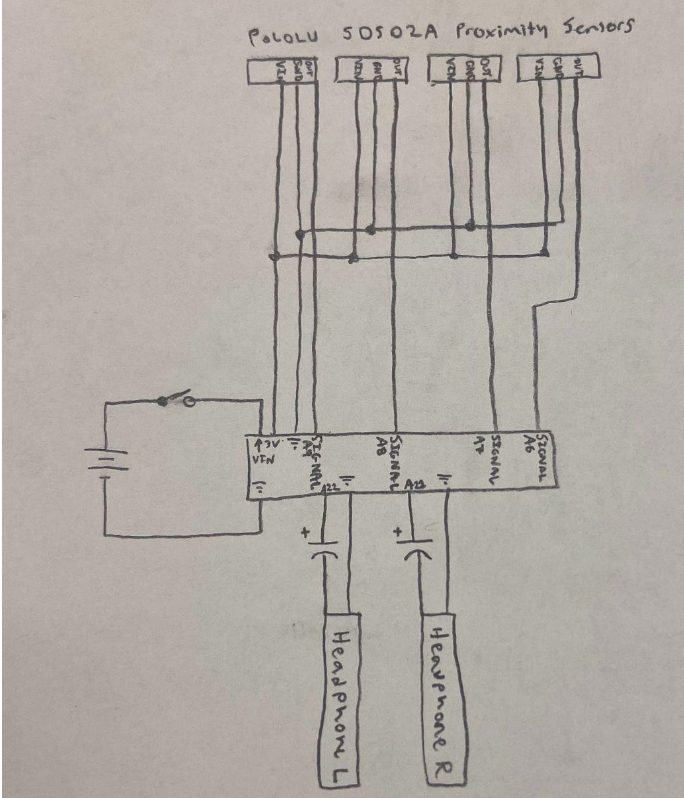 Pololu SDS02A Proximity Sensors
VIN GND OUT
VIN GND OUT
VIN GND OUT
VIN GND OUT
3V
VIN
SIGNAL A9
SIGNAL A8
SIGNAL A7
SIGNAL A6
A22
A22
+
+
Headphone L
Headphone R